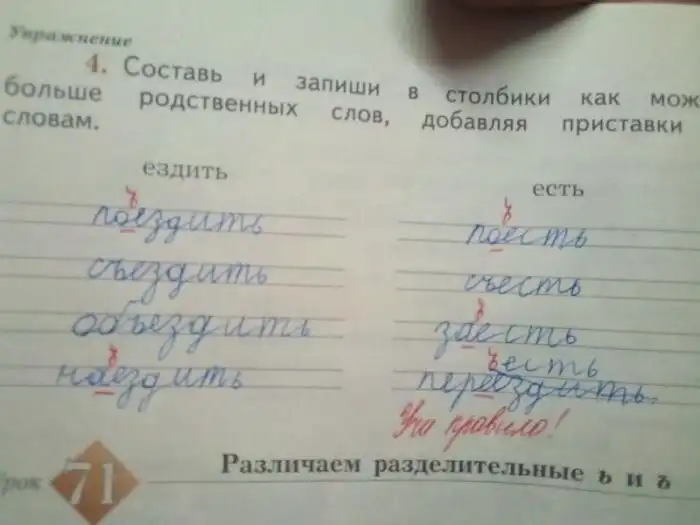 Упражнение
4. Составь и запиши в столбики как мож
больше родственных слов, добавляя приставки
словам.
ездить есть
ъ ъ
поездить поесть
съездить съесть
ъ
объездить заесть
ъ ъесть
наездить переездить.
Учи правило!
рок 71 Различаем разделительные ь и ъ